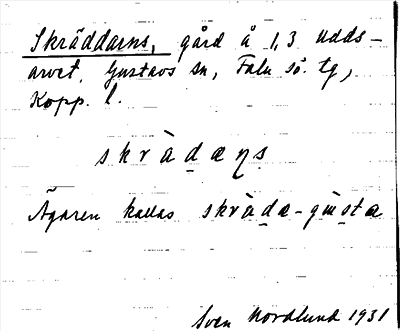 Skräddarns, gård å 1,3 Udds-
arvet, Gustavs sn, Falu sö. tg,
Kopp. l.
skrὰdæṇṣ
Ägaren kallas skrὰdæ-gùsta
Sven Nordlund 1931